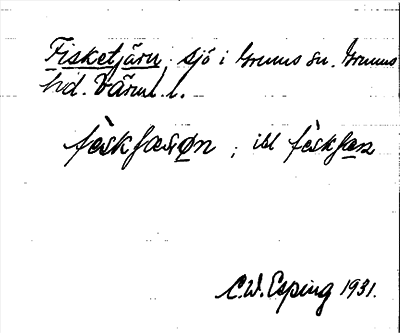 Fisketjärn, sjö i Grums sn. Grums
hd. Värml. l.
fèskjæɳøn ; ibl fèskjæn
C.W. Esping 1931.